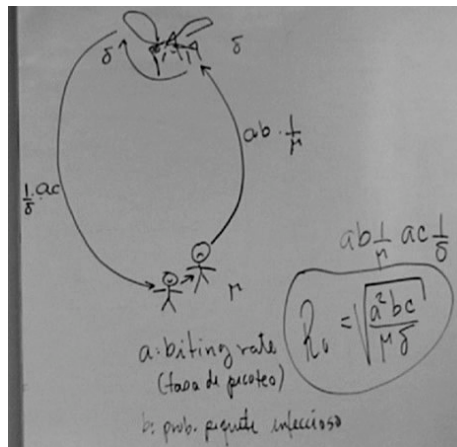 δ
δ
ab · 1/μ
1/δ · ac
μ
ab 1/μ ac 1/δ
R₀ = √(a²bc/μδ)
a: biting rate
(tasa de picoteo)
b: prob. piquete infeccioso